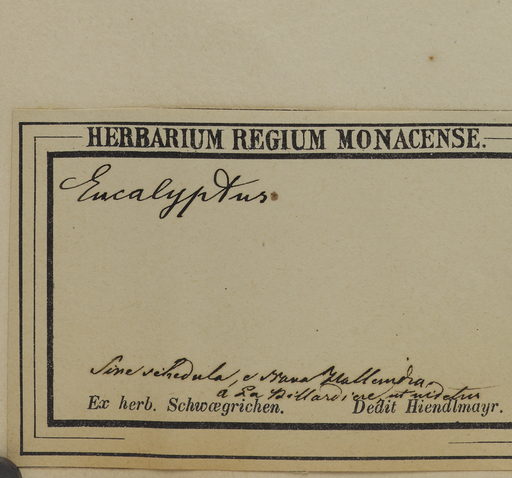 HERBARIUM REGIUM MONACENSE.
Eucalyptus
Sine schedula, e Nova Hollandia
a La Billardiere, ut videtur
Ex herb. Schwægrichen. Dedit Hiendlmayr.